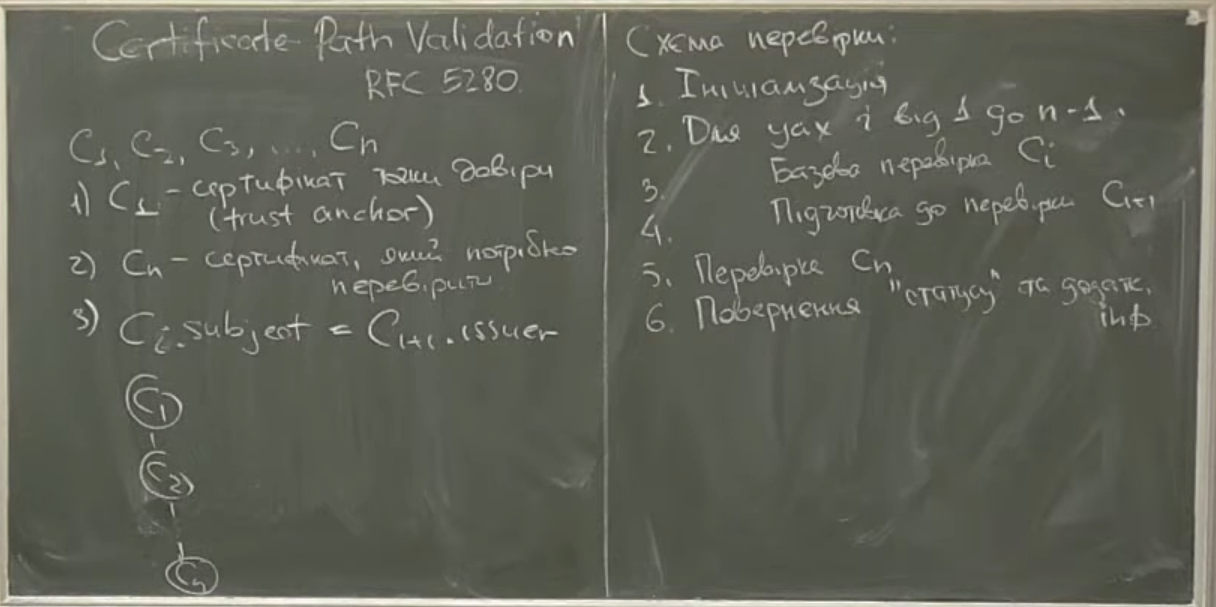 Certificate Path Validation
RFC 5280
C1, C2, C3, ..., Cn
1) C1 - сертифікат точки довіри
(trust anchor)
2) Cn - сертифікат, який потрібно
перевірити
3) Ci.subject = Ci+1.issuer
C1
C2
Cn
Схема перевірки:
1. Ініціалізація
2. Для усіх i від 1 до n-1.
3. Базова перевірка Ci
4. Підготовка до перевірки Ci+1
5. Перевірка Cn
6. Повернення "статусу" та додатк.
інф